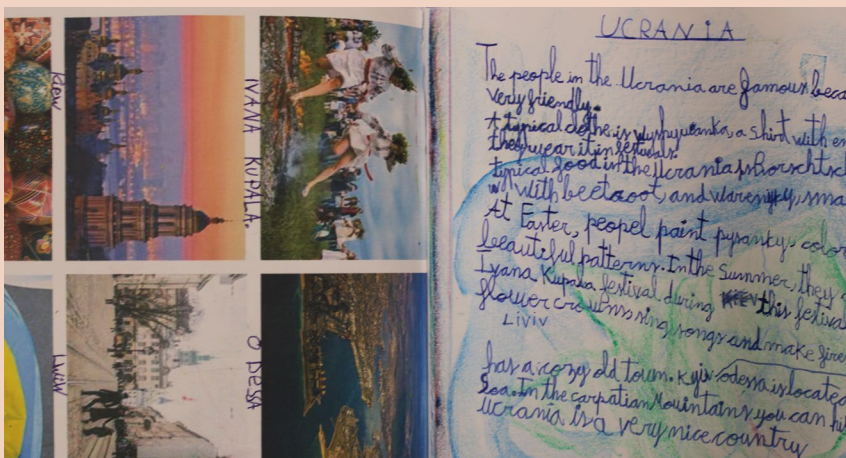 Kiew
IVANA KUPALA.
Lwiw
ODESSA
UCRANIA
The people in the Ucrania are famous beca
very friendly.
A typical clothe is wyshywanka, a shirt with em
they wear it in festivals.
typical food in the Ucrania is Borschtsch
with beetroot, and wareniky, sma
At Easter, peopel paint pysanky, color
beautiful patterns. In the Summer, they
Ivana Kupala festival during this festival
flower crowns sing songs and make fire
Liviv
has a cozy old town. Kyiv odessa is located
Sea. In the carpatian Mountains you can hi
Ucrania is a very nice country